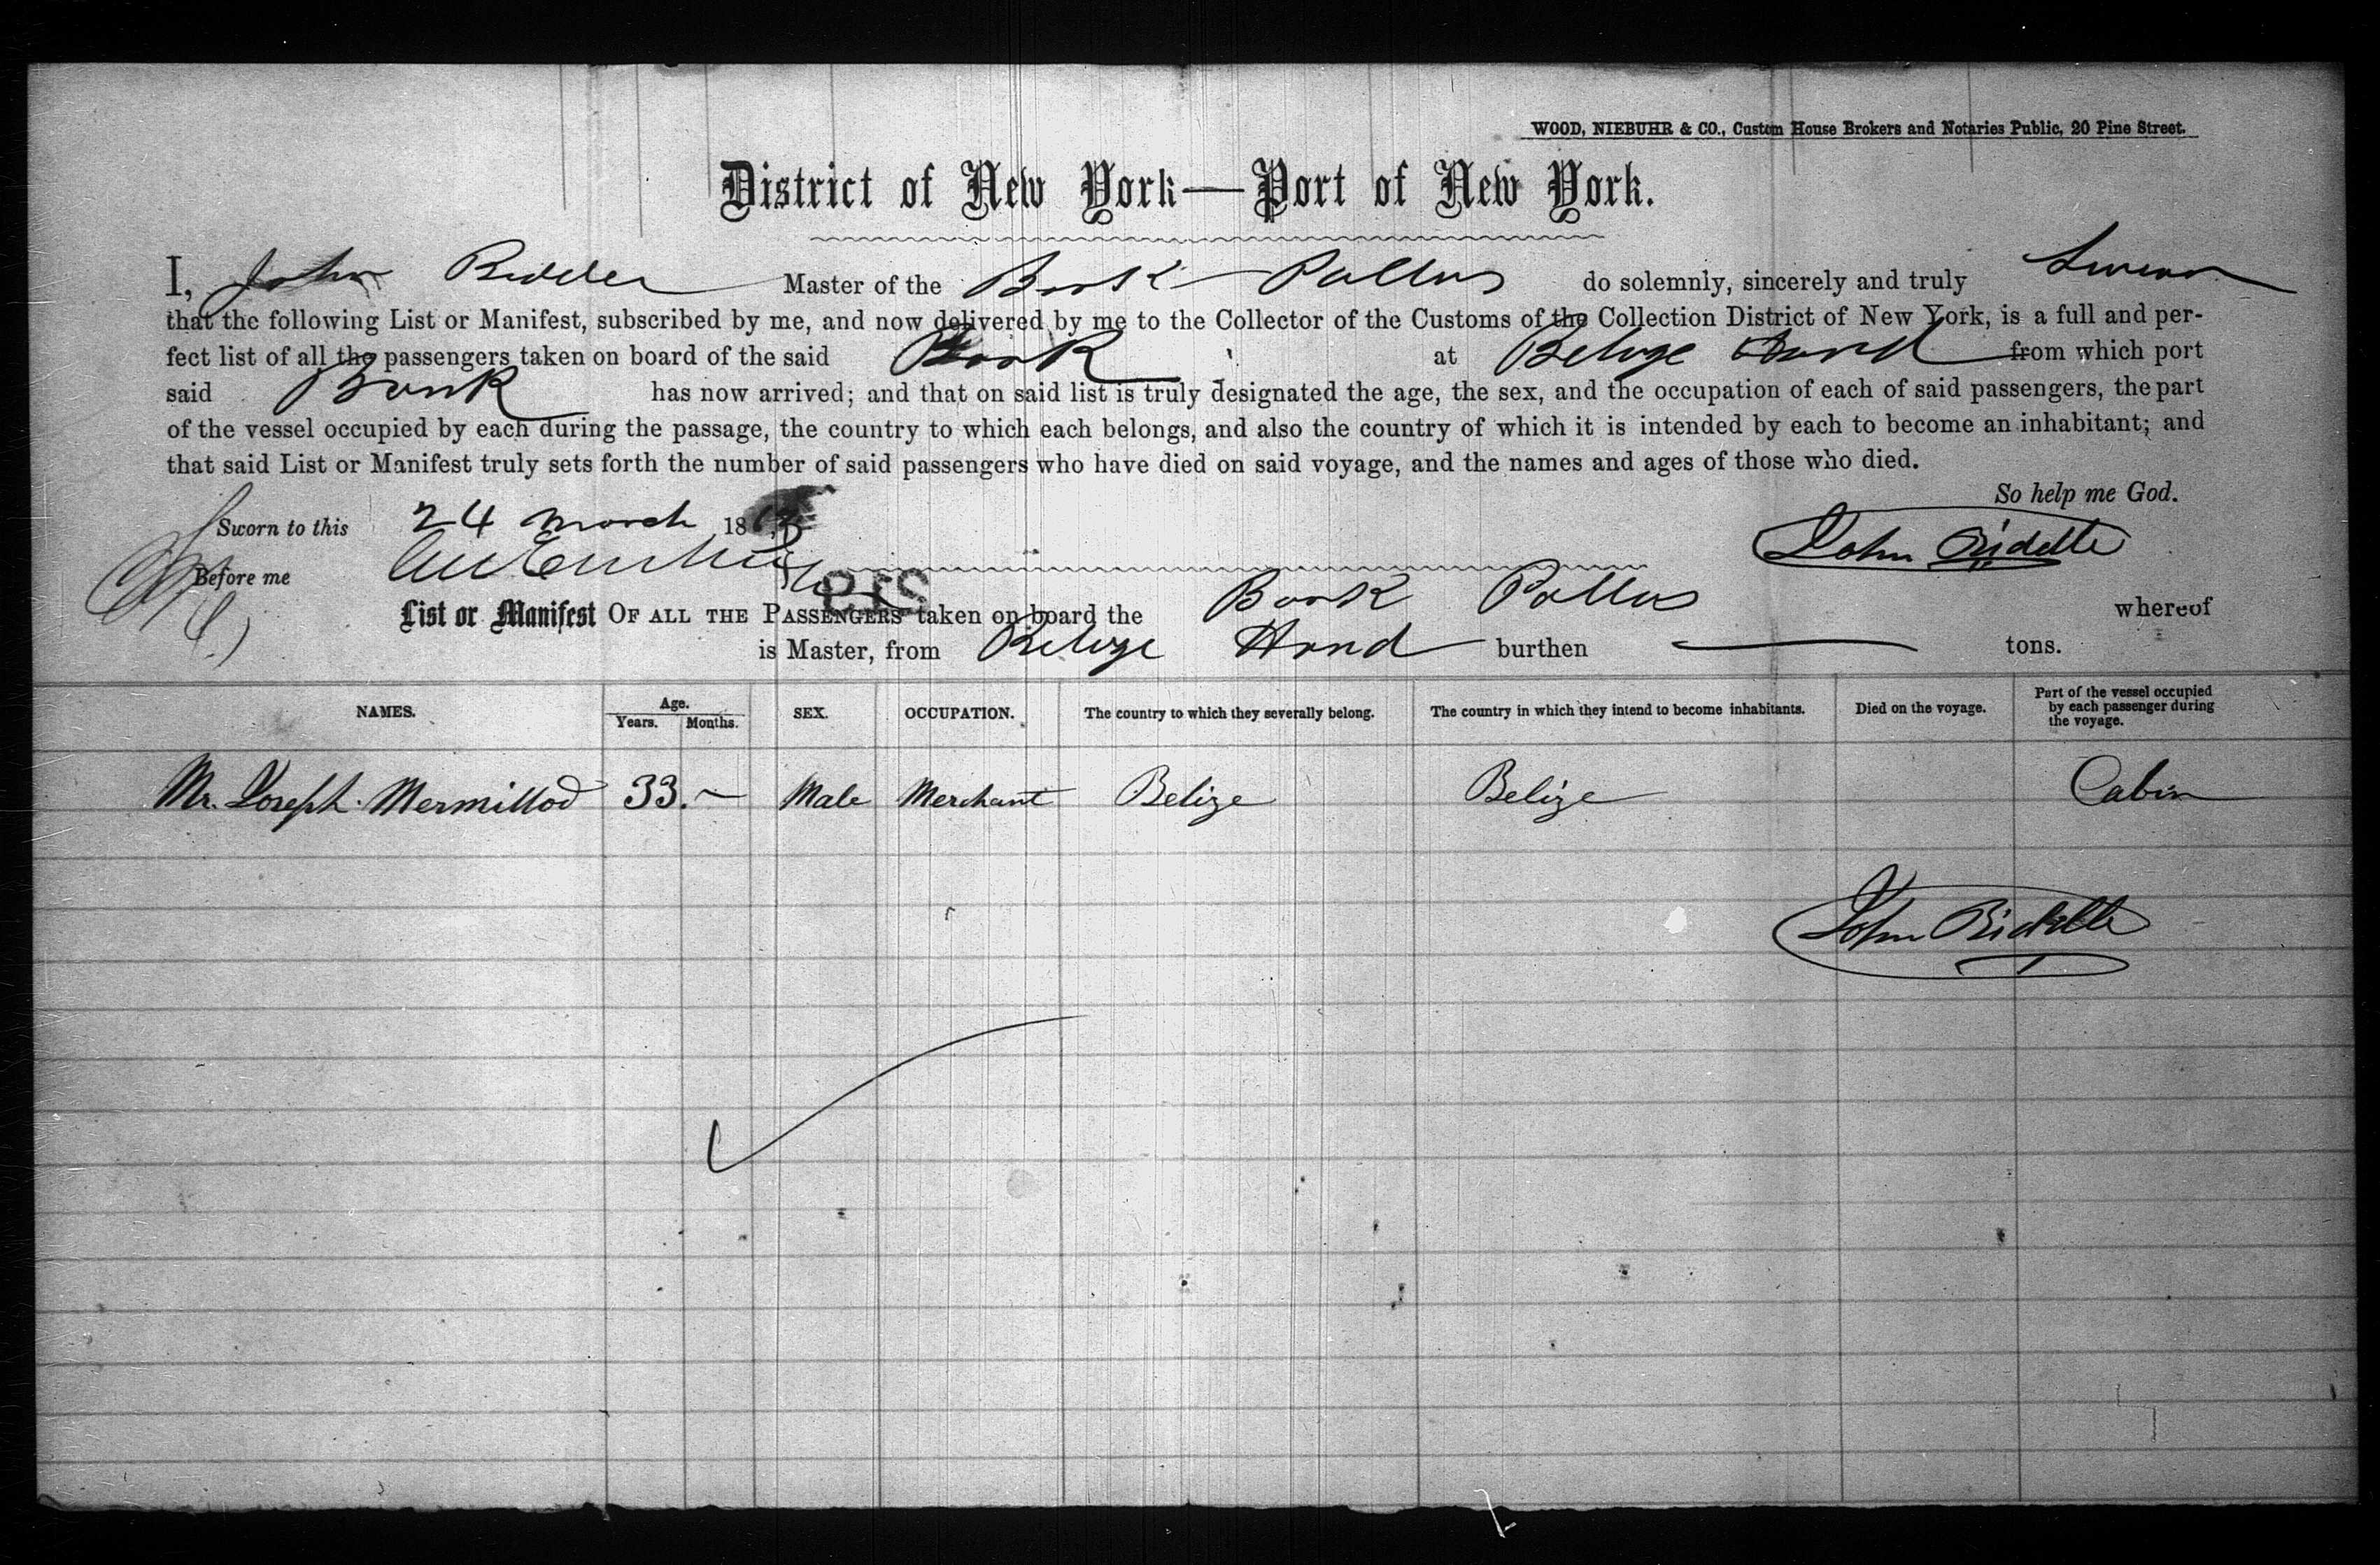 WOOD, NIEBUHR & CO., Custom House Brokers and Notaries Public, 20 Pine Street.
District of New York—Port of New York.
I, John Master of the Bark Pallas do solemnly, sincerely and truly Swear
that the following List or Manifest, subscribed by me, and now delivered by me to the Collector of the Customs of the Collection District of New York, is a full and per-
fect list of all the passengers taken on board of the said Bark at Belize Hond from which port
said Bark has now arrived; and that on said list is truly designated the age, the sex, and the occupation of each of said passengers, the part
of the vessel occupied by each during the passage, the country to which each belongs, and also the country of which it is intended by each to become an inhabitant; and
that said List or Manifest truly sets forth the number of said passengers who have died on said voyage, and the names and ages of those who died.
So help me God.
Sworn to this 24 March 18
John
Before me
List or Manifest OF ALL THE PASSENGERS taken on board the Bark Pallas whereof
is Master, from Belize Hond burthen tons.
NAMES. Age. Years. Months. SEX. OCCUPATION. The country to which they severally belong. The country in which they intend to become inhabitants. Died on the voyage. Part of the vessel occupied by each passenger during the voyage.
Mr. Joseph Mermillod 33. ~ Male Merchant Belize Belize Cabin
John